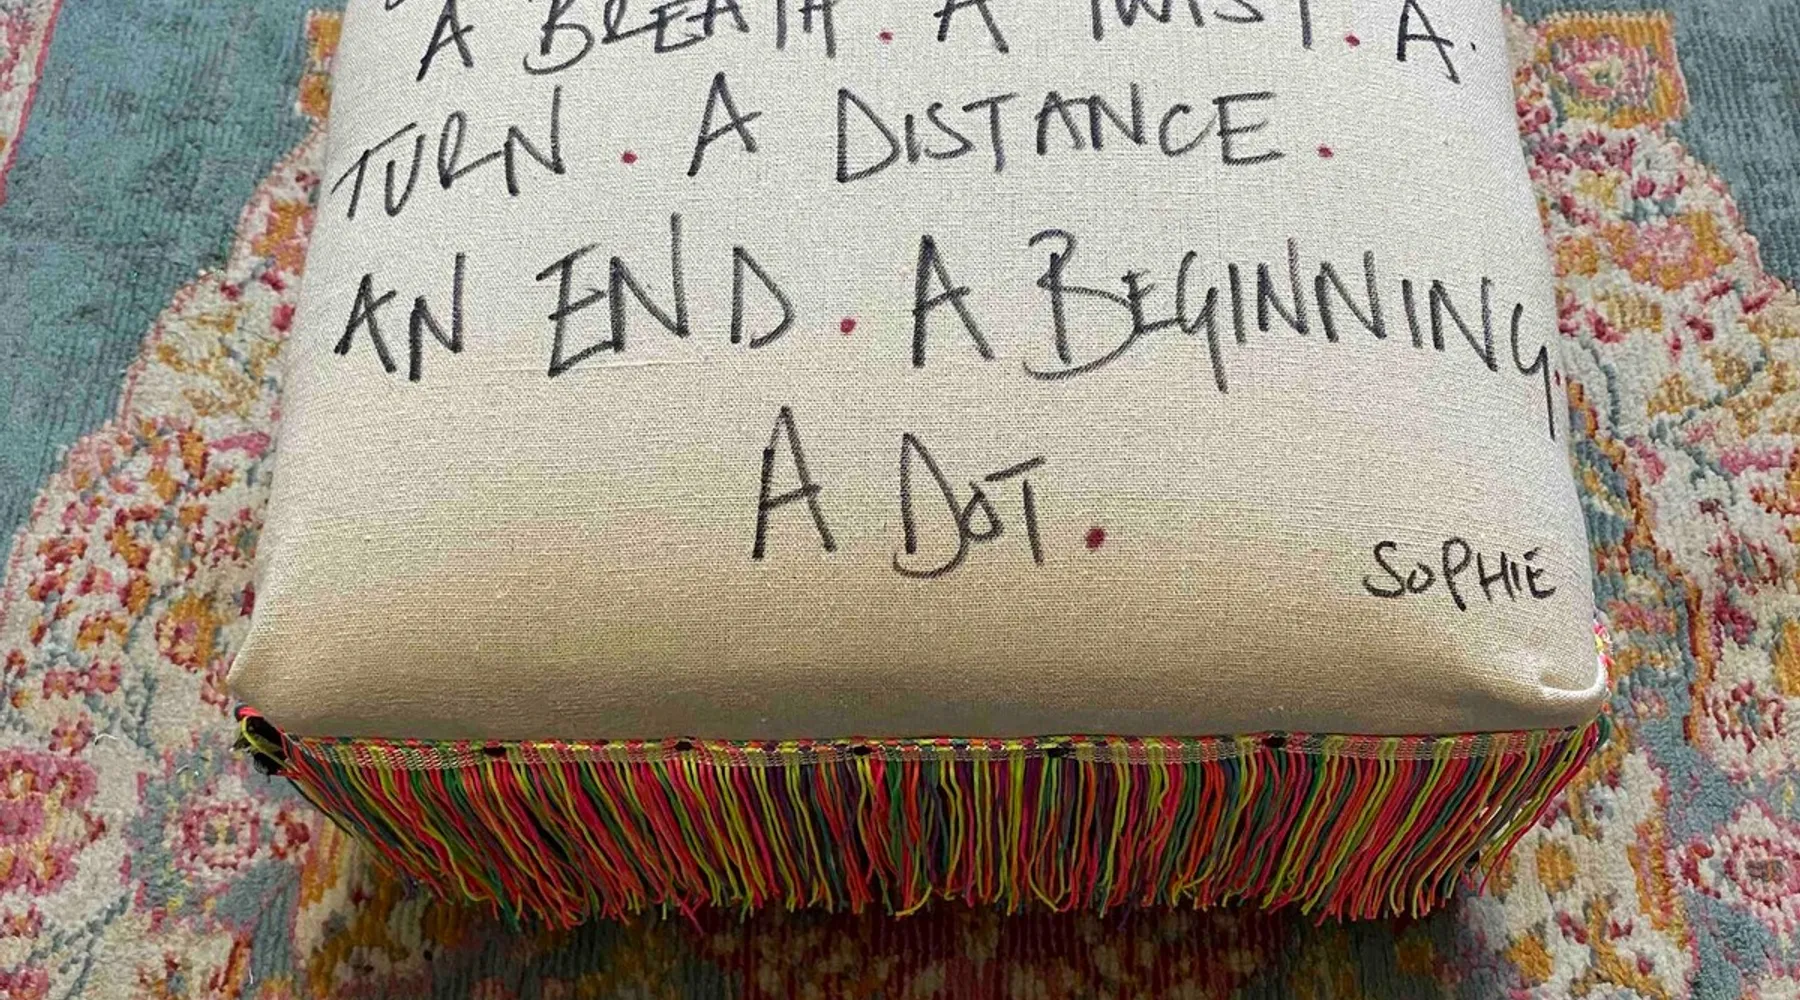 A BREATH. A TWIST. A.
TURN. A DISTANCE.
AN END. A BEGINNING.
A DOT.
SOPHIE